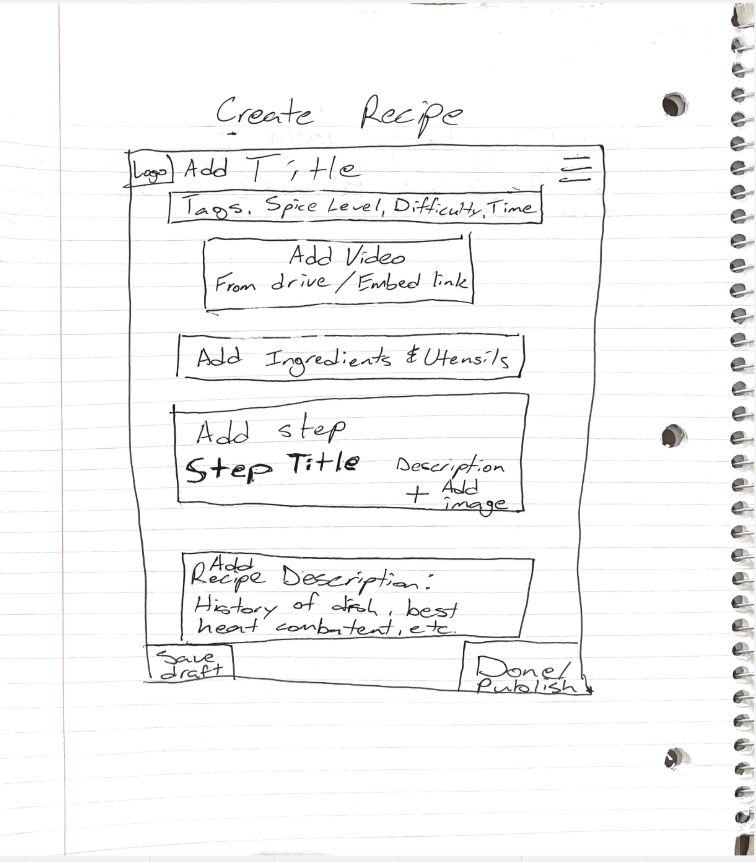 Create Recipe
Logo Add Title
Tags, Spice Level, Difficulty, Time
Add Video
From drive / Embed link
Add Ingredients & Utensils
Add step
Step Title Description
+ Add
image
Add
Recipe Description:
History of dish, best
heat combatent, etc.
Save
draft
Done/
Publish